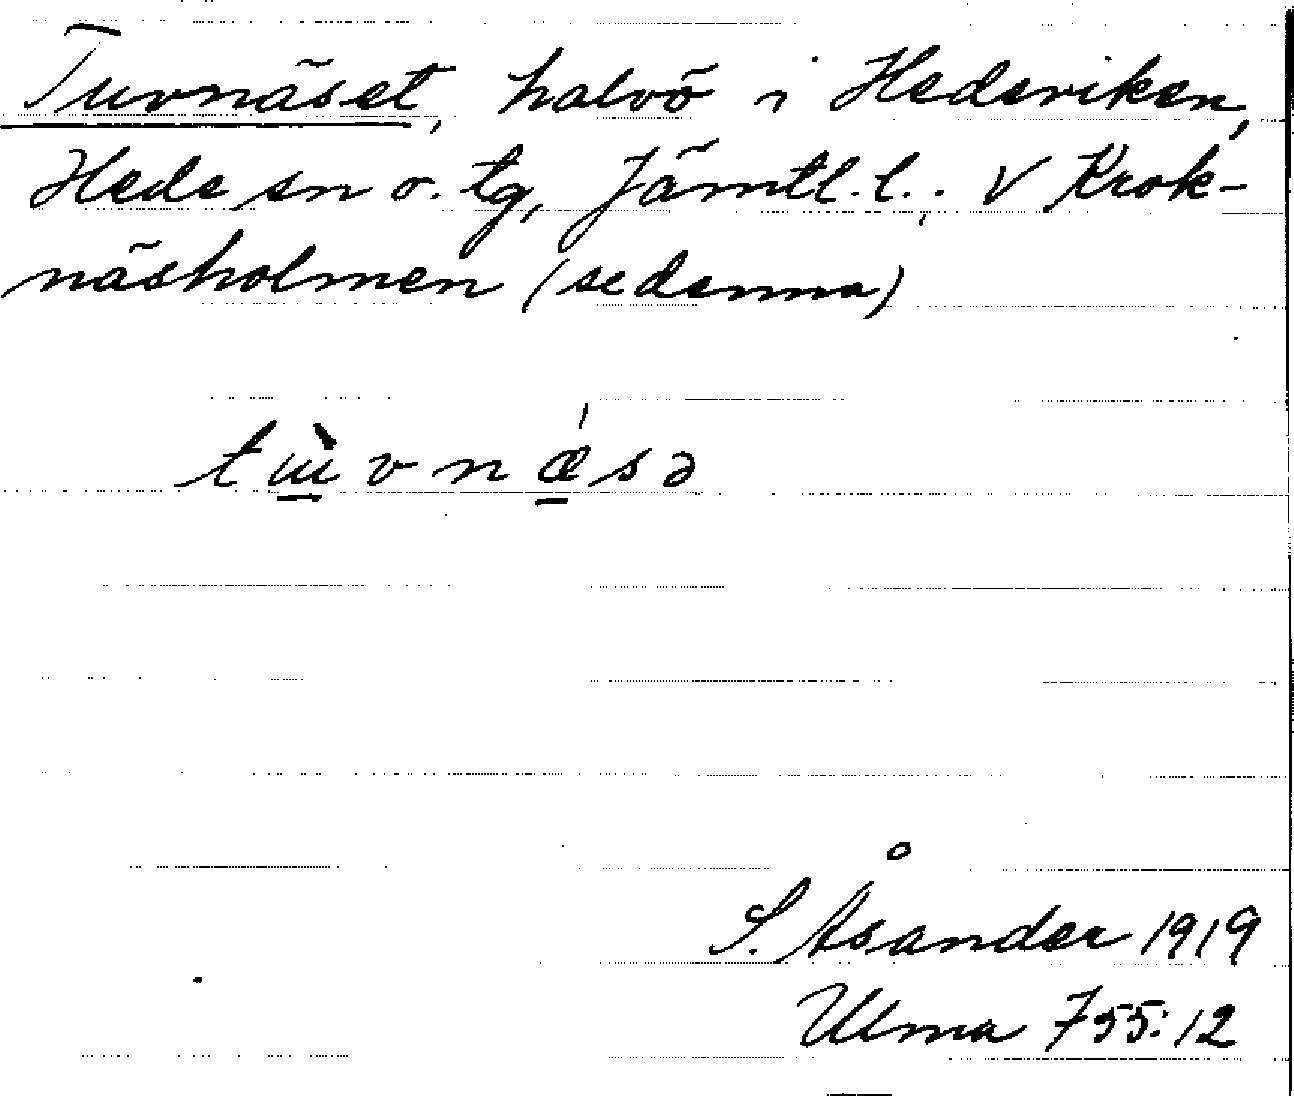 Tuvnäset, halvö i Hedeviken,
Hede sn o. tg, Jämtl. l.; V Krok-
näsholmen (se denna)
tɯ̀vnæ'sə
S. Åsander 1919
Ulma 755:12